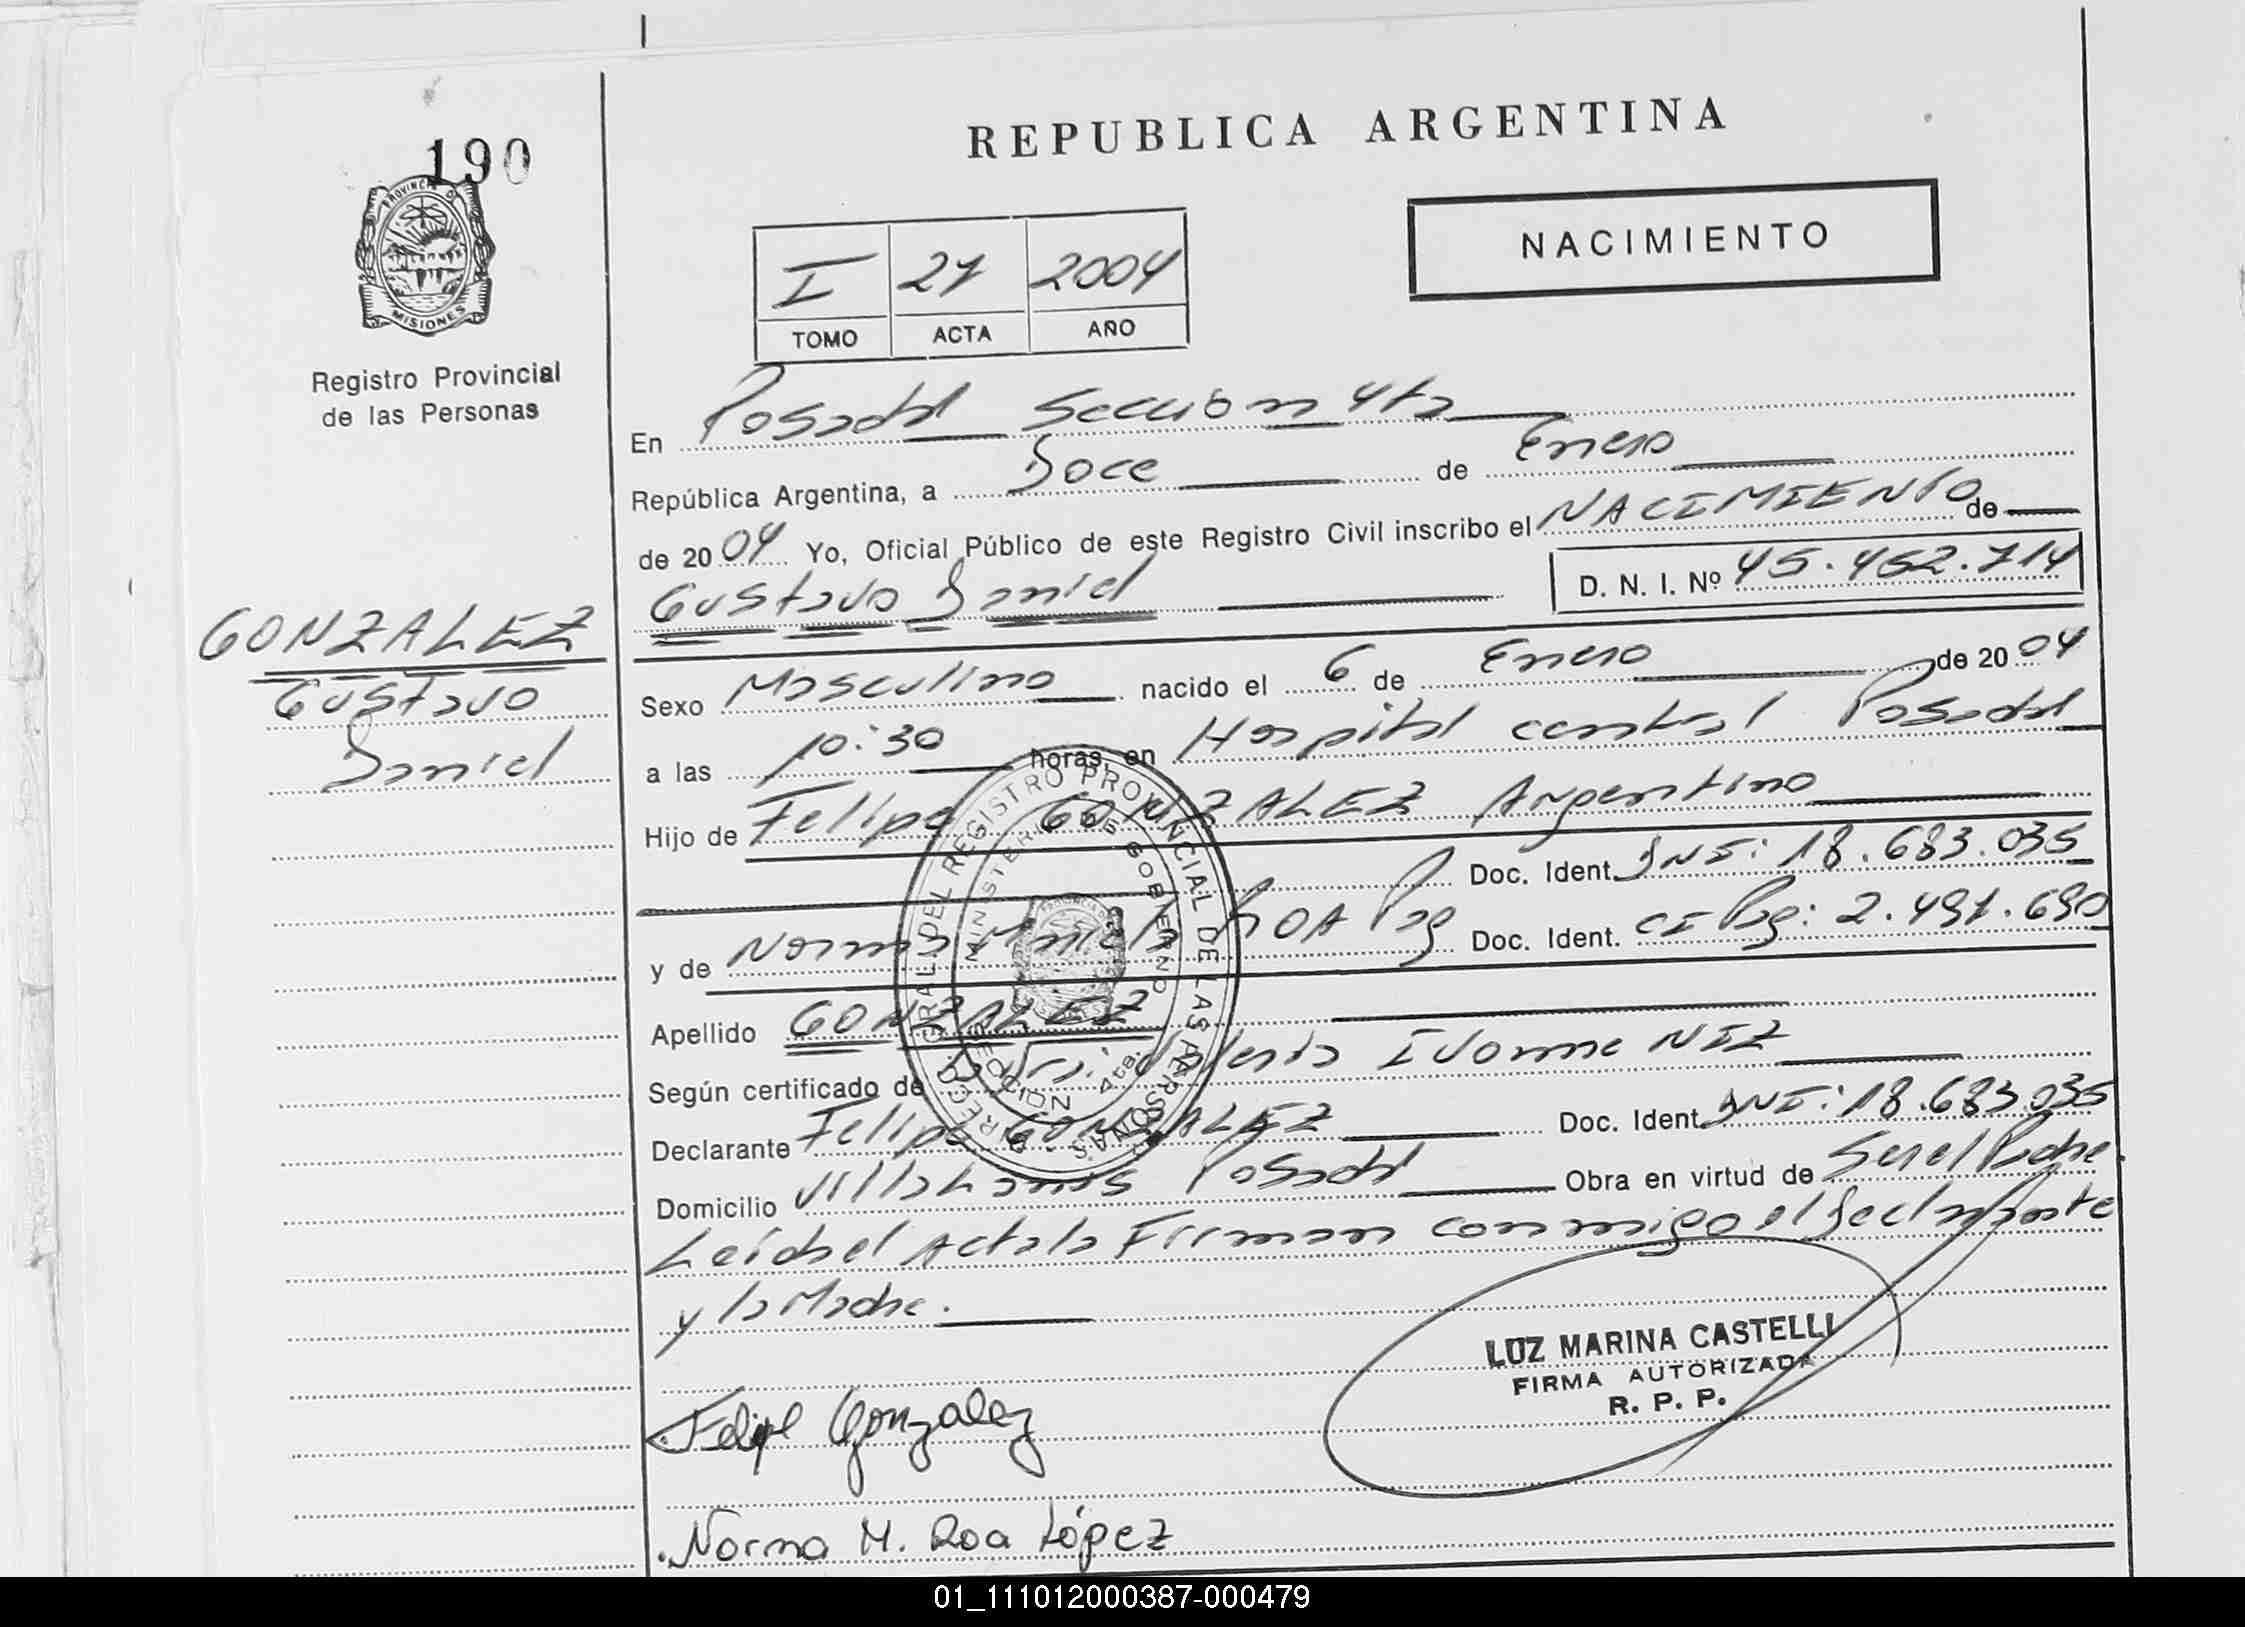 190
PROVINCIA DE
MISIONES
Registro Provincial
de las Personas
GONZALEZ
Gustavo
Daniel
REPUBLICA ARGENTINA
NACIMIENTO
I 21 2004
TOMO ACTA AÑO
En Posadas Sección 4ta
República Argentina, a Doce de Enero
de 2004 Yo, Oficial Público de este Registro Civil inscribo el NACIMIENTO de
Gustavo Daniel D. N. I. Nº 45.452.714
Sexo Masculino nacido el 6 de Enero de 2004
a las 10:30 horas, en Hospital central Posadas
Hijo de Felipe GONZALEZ Argentino
Doc. Ident. DNI: 18.683.035
y de Norma ROA Pag Doc. Ident. CI Pag: 2.491.690
Apellido GONZALEZ
Según certificado de Ivonne NIZ
Declarante Felipe GONZALEZ Doc. Ident. DNI: 18.683.035
Domicilio Villa Posadas Obra en virtud de Ser el Padre
Leída el Acta la Firman conmigo el declarante
y la Madre.
DIREC. GRAL. DEL REGISTRO PROVINCIAL DE LAS PERSONAS
MINISTERIO DE GOBIERNO
SECCION 4ta.
LUZ MARINA CASTELLI
FIRMA AUTORIZADA
R. P. P.
Felipe Gonzalez
Norma M. Roa López
01_111012000387-000479